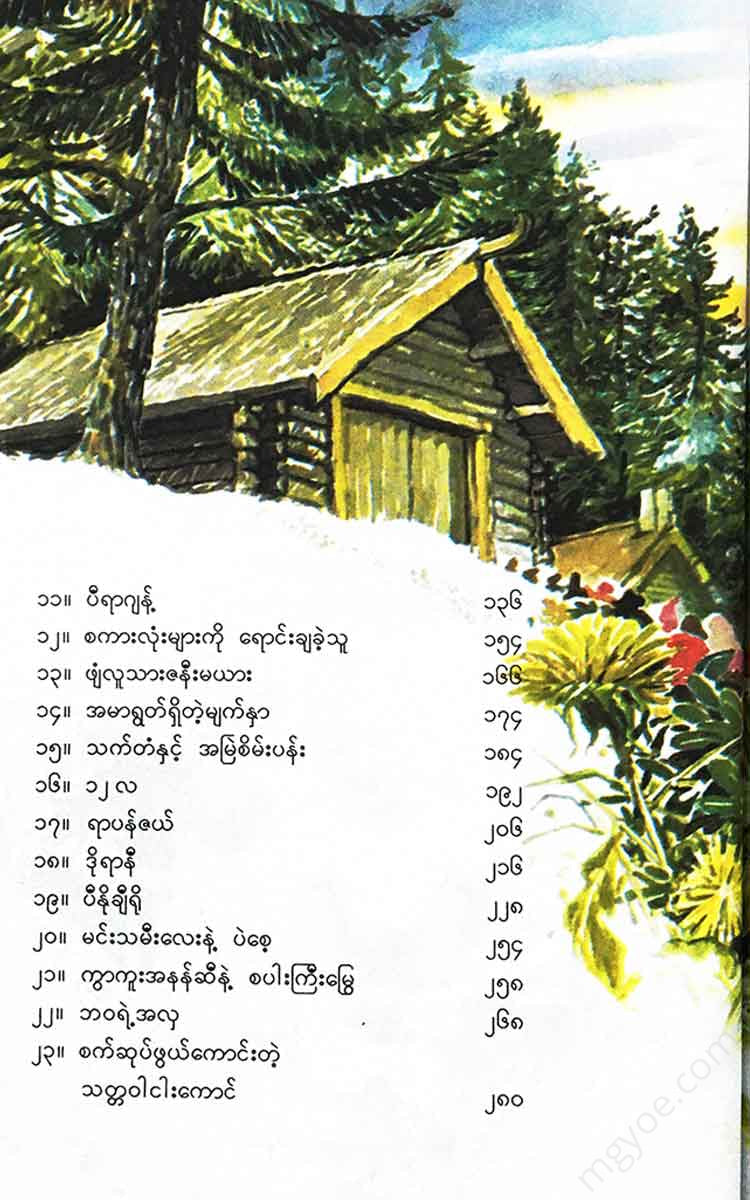 ၁၁။ ပီရာဂျန့် ၁၃၆
၁၂။ စကားလုံးများကို ရောင်းချခဲ့သူ ၁၅၄
၁၃။ ဖျံလူသားဇနီးမယား ၁၆၆
၁၄။ အမာရွတ်ရှိတဲ့မျက်နှာ ၁၇၄
၁၅။ သက်တံနှင့် အမြဲစိမ်းပန်း ၁၈၄
၁၆။ ၁၂ လ ၁၉၂
၁၇။ ရာပန်ဇယ် ၂၀၆
၁၈။ ဒိုရာနီ ၂၁၆
၁၉။ ပီနိုချီရို ၂၂၈
၂၀။ မင်းသမီးလေးနဲ့ ပဲစေ့ ၂၅၄
၂၁။ ကွာကူးအနန်ဆီနဲ့ စပါးကြီးမြွေ ၂၅၈
၂၂။ ဘဝရဲ့အလှ ၂၆၈
၂၃။ စက်ဆုပ်ဖွယ်ကောင်းတဲ့
သတ္တဝါငါးကောင် ၂၈၀
mgyoe.com